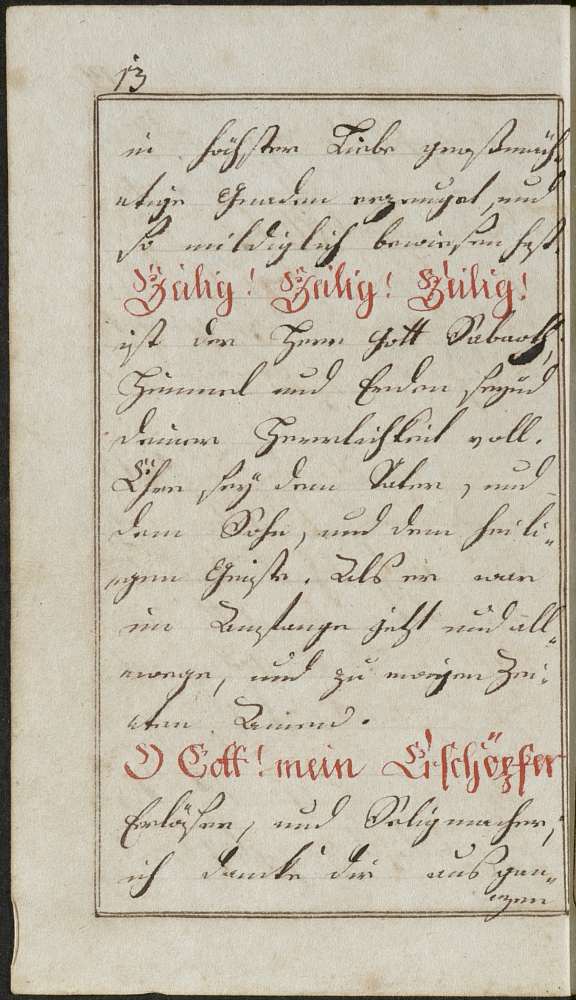 13
in höchster Liebe großmäch-
tige Gnaden erzeuget, und
so mildiglich bewiesen hast.
Heilig! Heilig! Heilig!
ist der Herr Gott Sabaoth,
Himmel und Erden seynd
deiner Herrlichkeit voll.
Ehre sey dem Vater, und
dem Sohn, und dem heili-
gen Geiste. Als er war
im Anfange jetzt und all-
wege, und zu ewigen Zei-
ten Amen.
O Gott! mein Erschöpfer
Erlöser, und Seligmacher,
ich danke dir aus gan-
zen